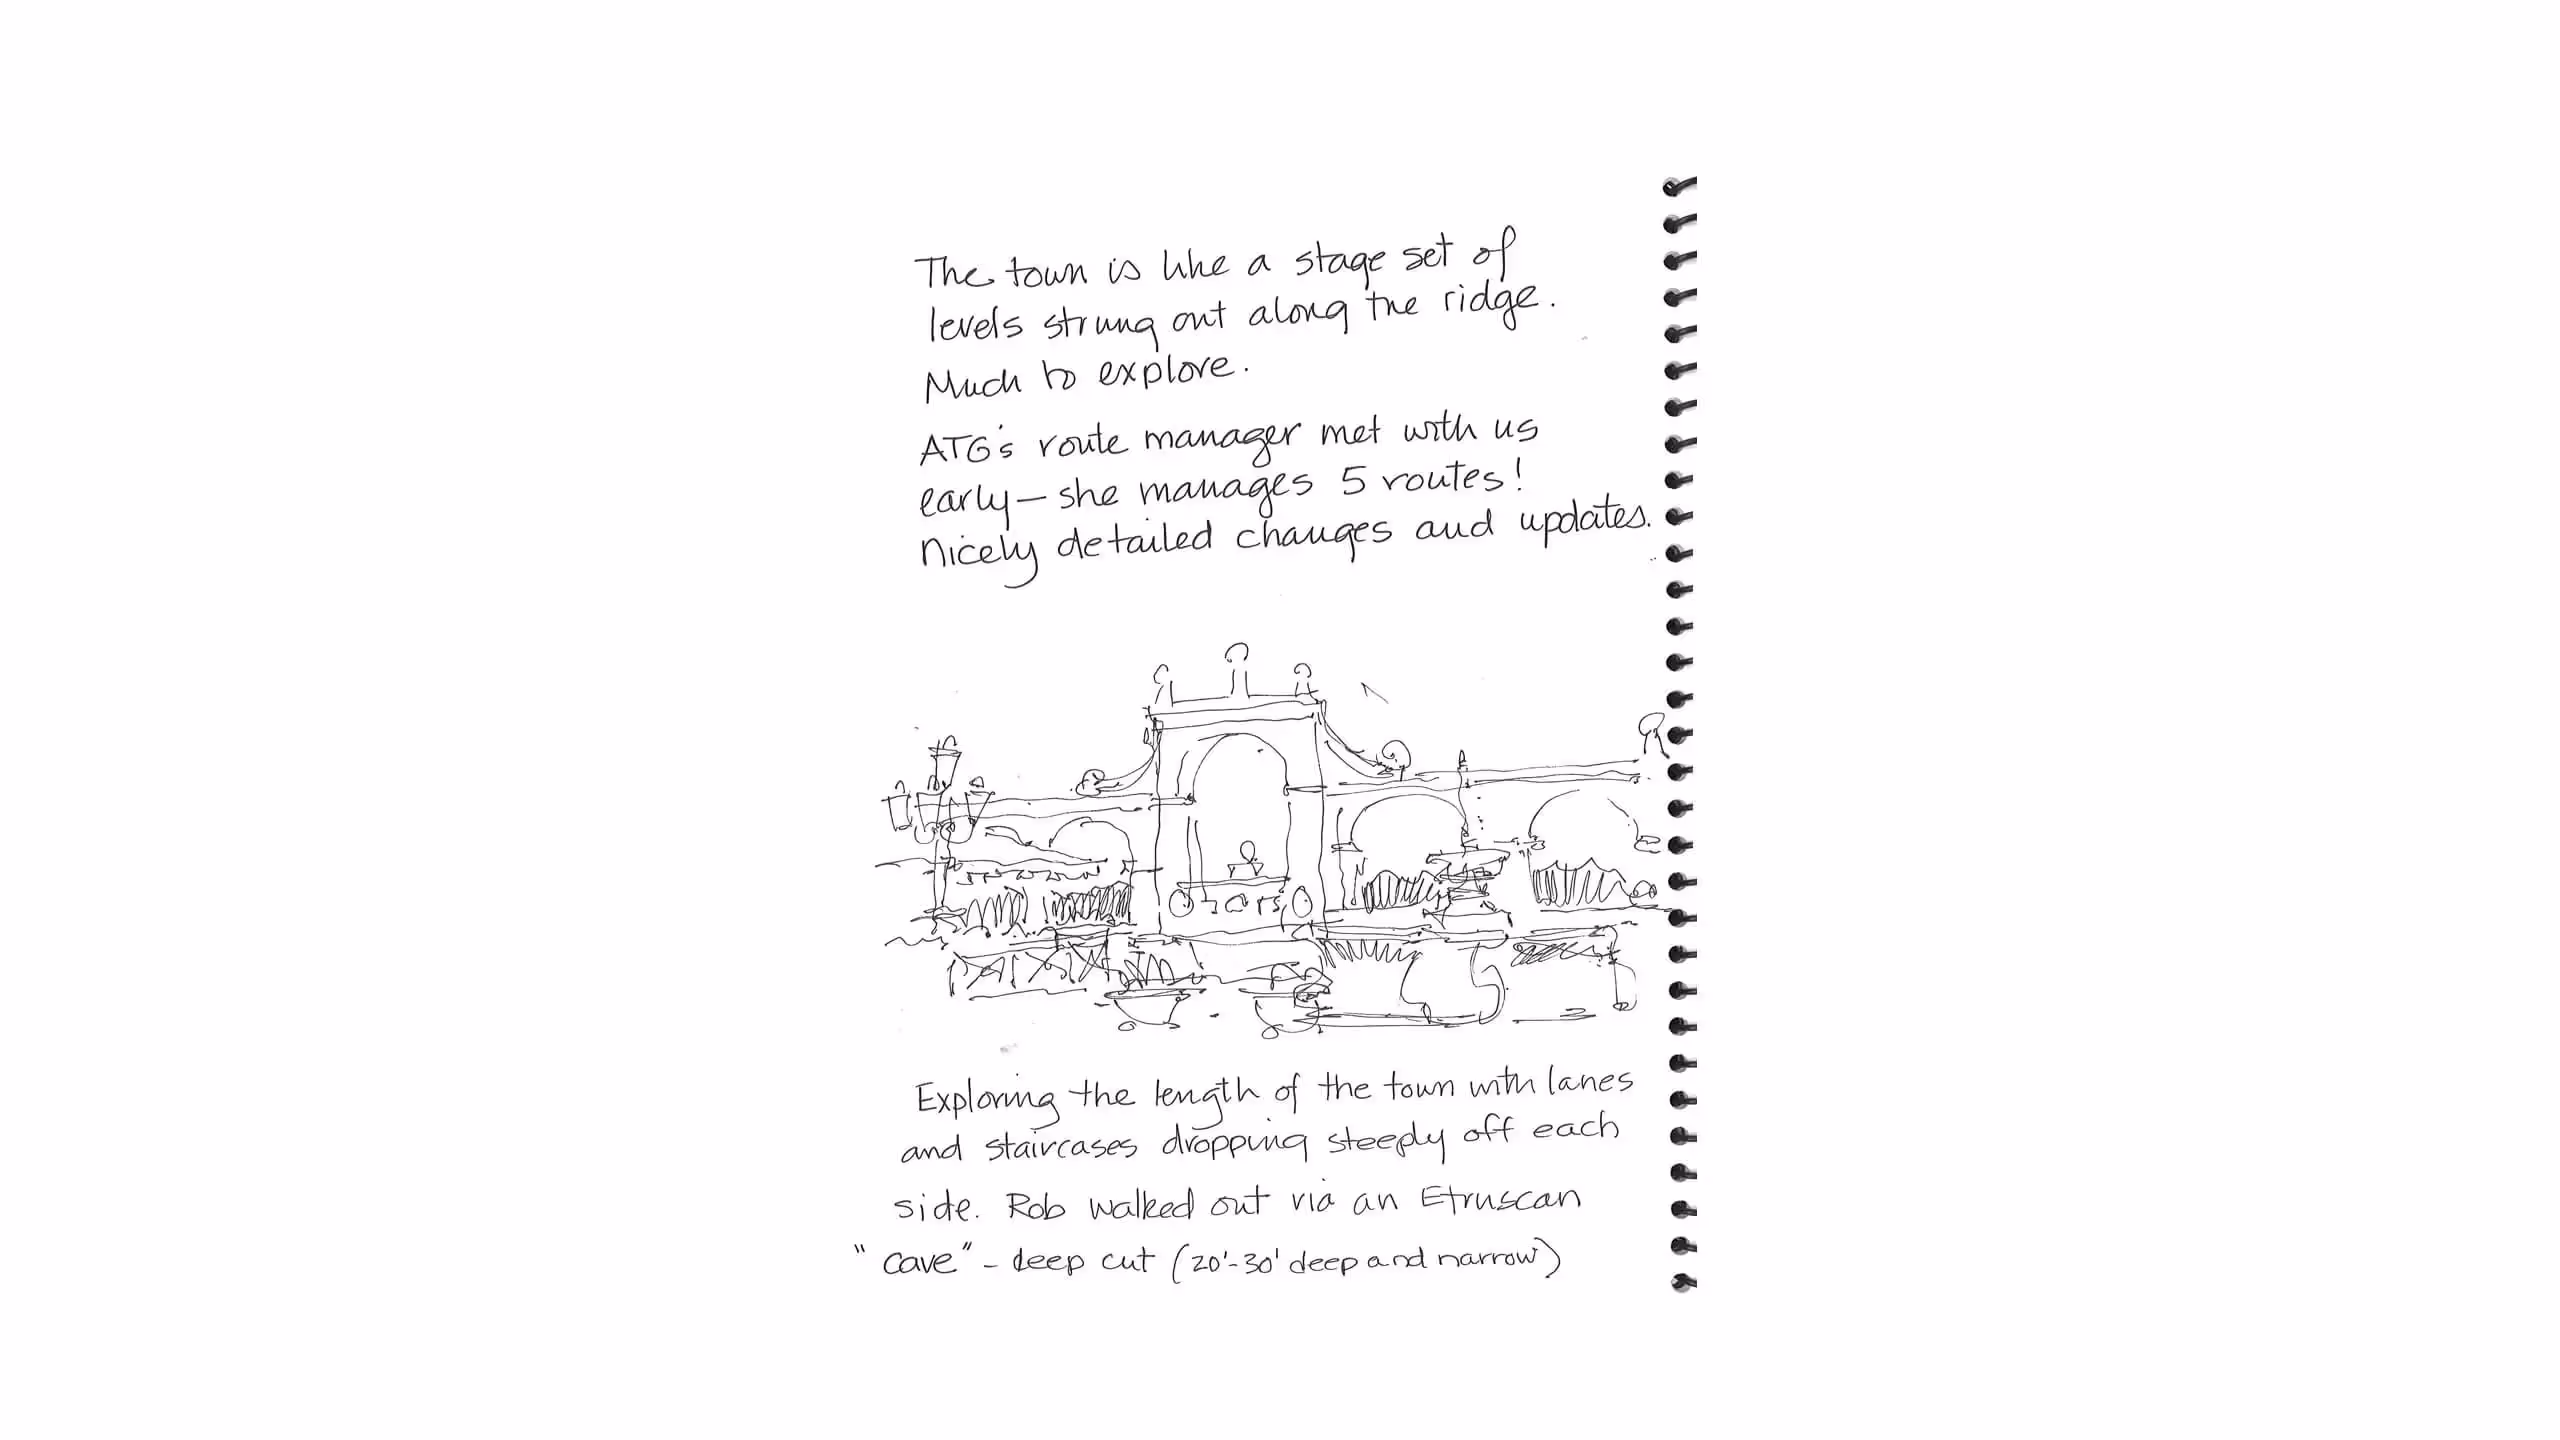 The town is like a stage set of
levels strung out along the ridge.
Much to explore.
ATG's route manager met with us
early — she manages 5 routes!
Nicely detailed changes and updates.
Exploring the length of the town with lanes
and staircases dropping steeply off each
side. Rob walked out via an Etruscan
"cave" - deep cut (20'-30' deep and narrow)